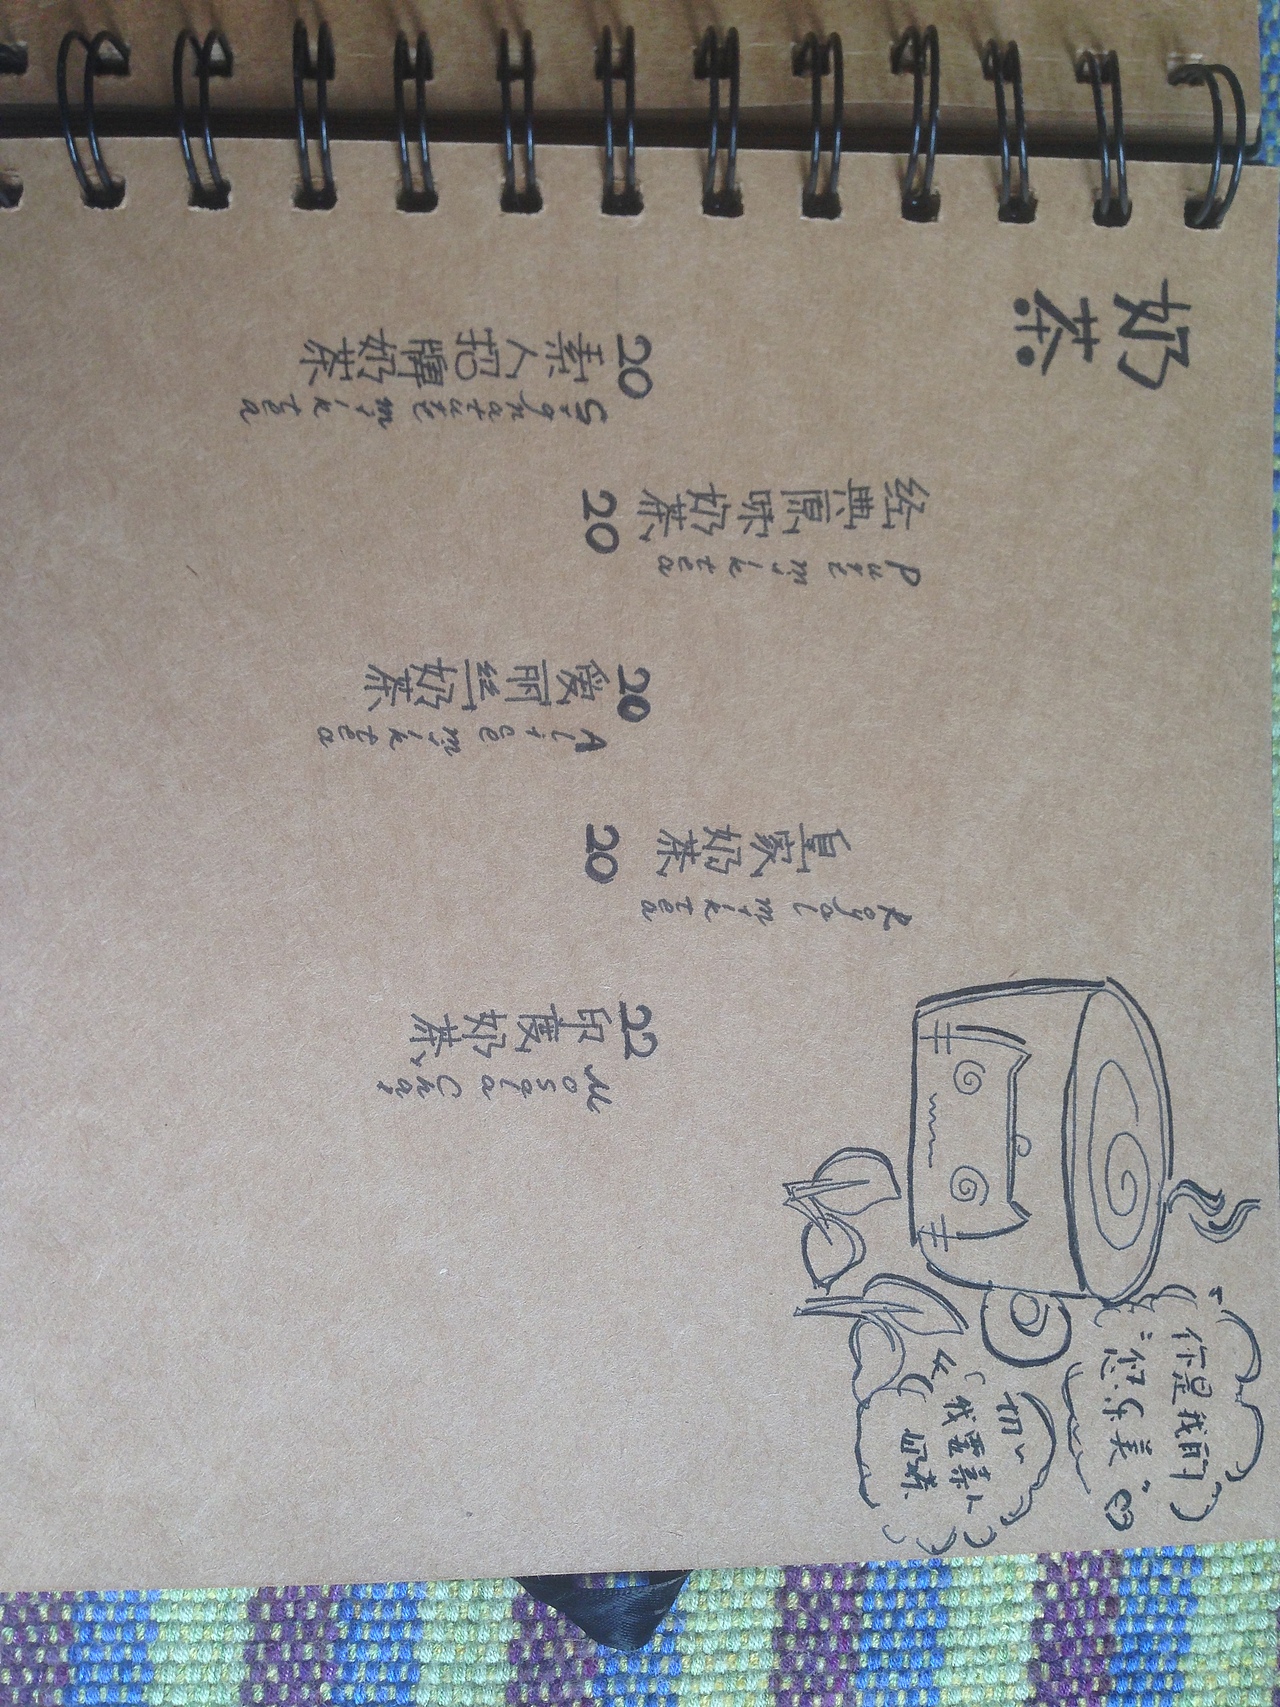 奶茶
20
素人招牌奶茶
Signature milk tea
经典原味奶茶
20
Pure milk tea
20
爱丽丝奶茶
Alice milk tea
皇家奶茶
20
Royal milk tea
22
印度奶茶
Mosala Chai
你是我的
“优乐美”
切~
我要素人
奶茶